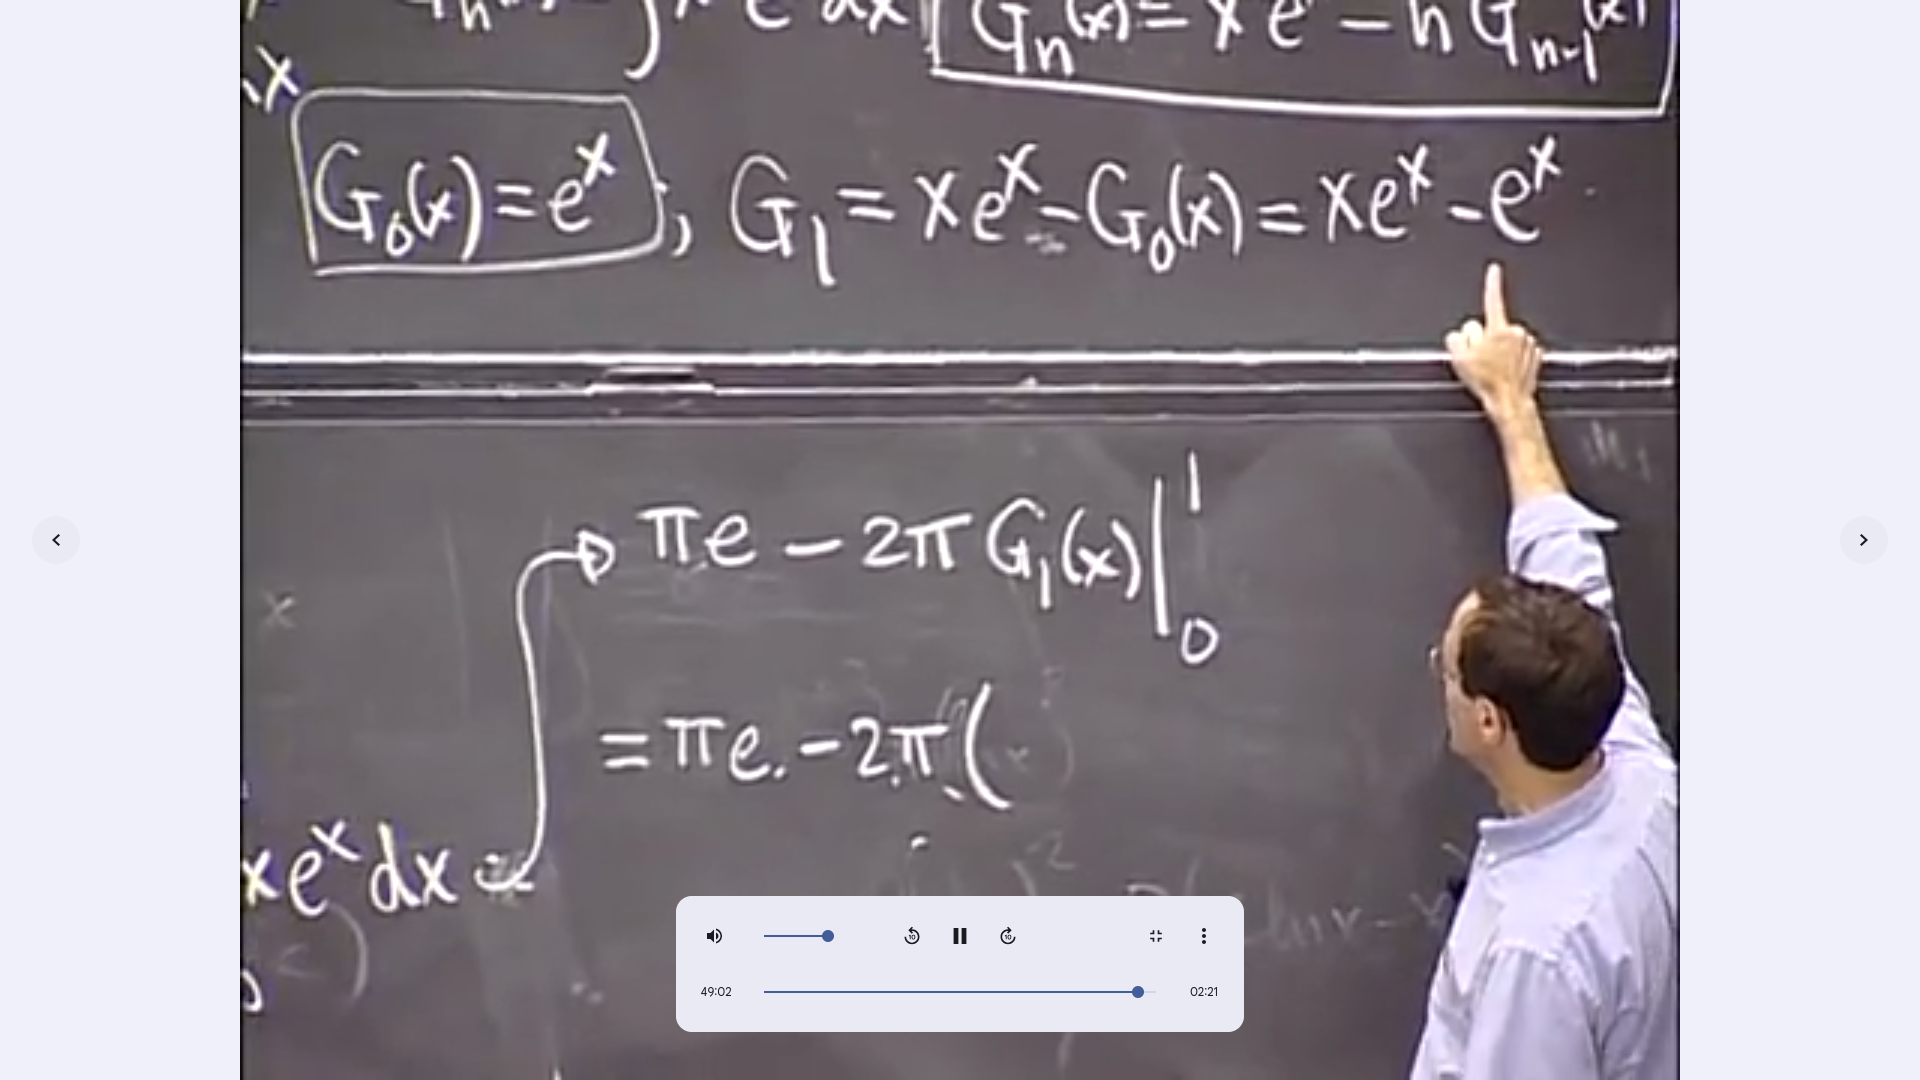 G_n(x) = x e - n G_{n-1}(x)
x
G_0(x) = e^x ; G_1 = xe^x - G_0(x) = xe^x - e^x
πe - 2π G_1(x) |_0^1
x
= πe - 2π (
xe^x dx
49:02 02:21